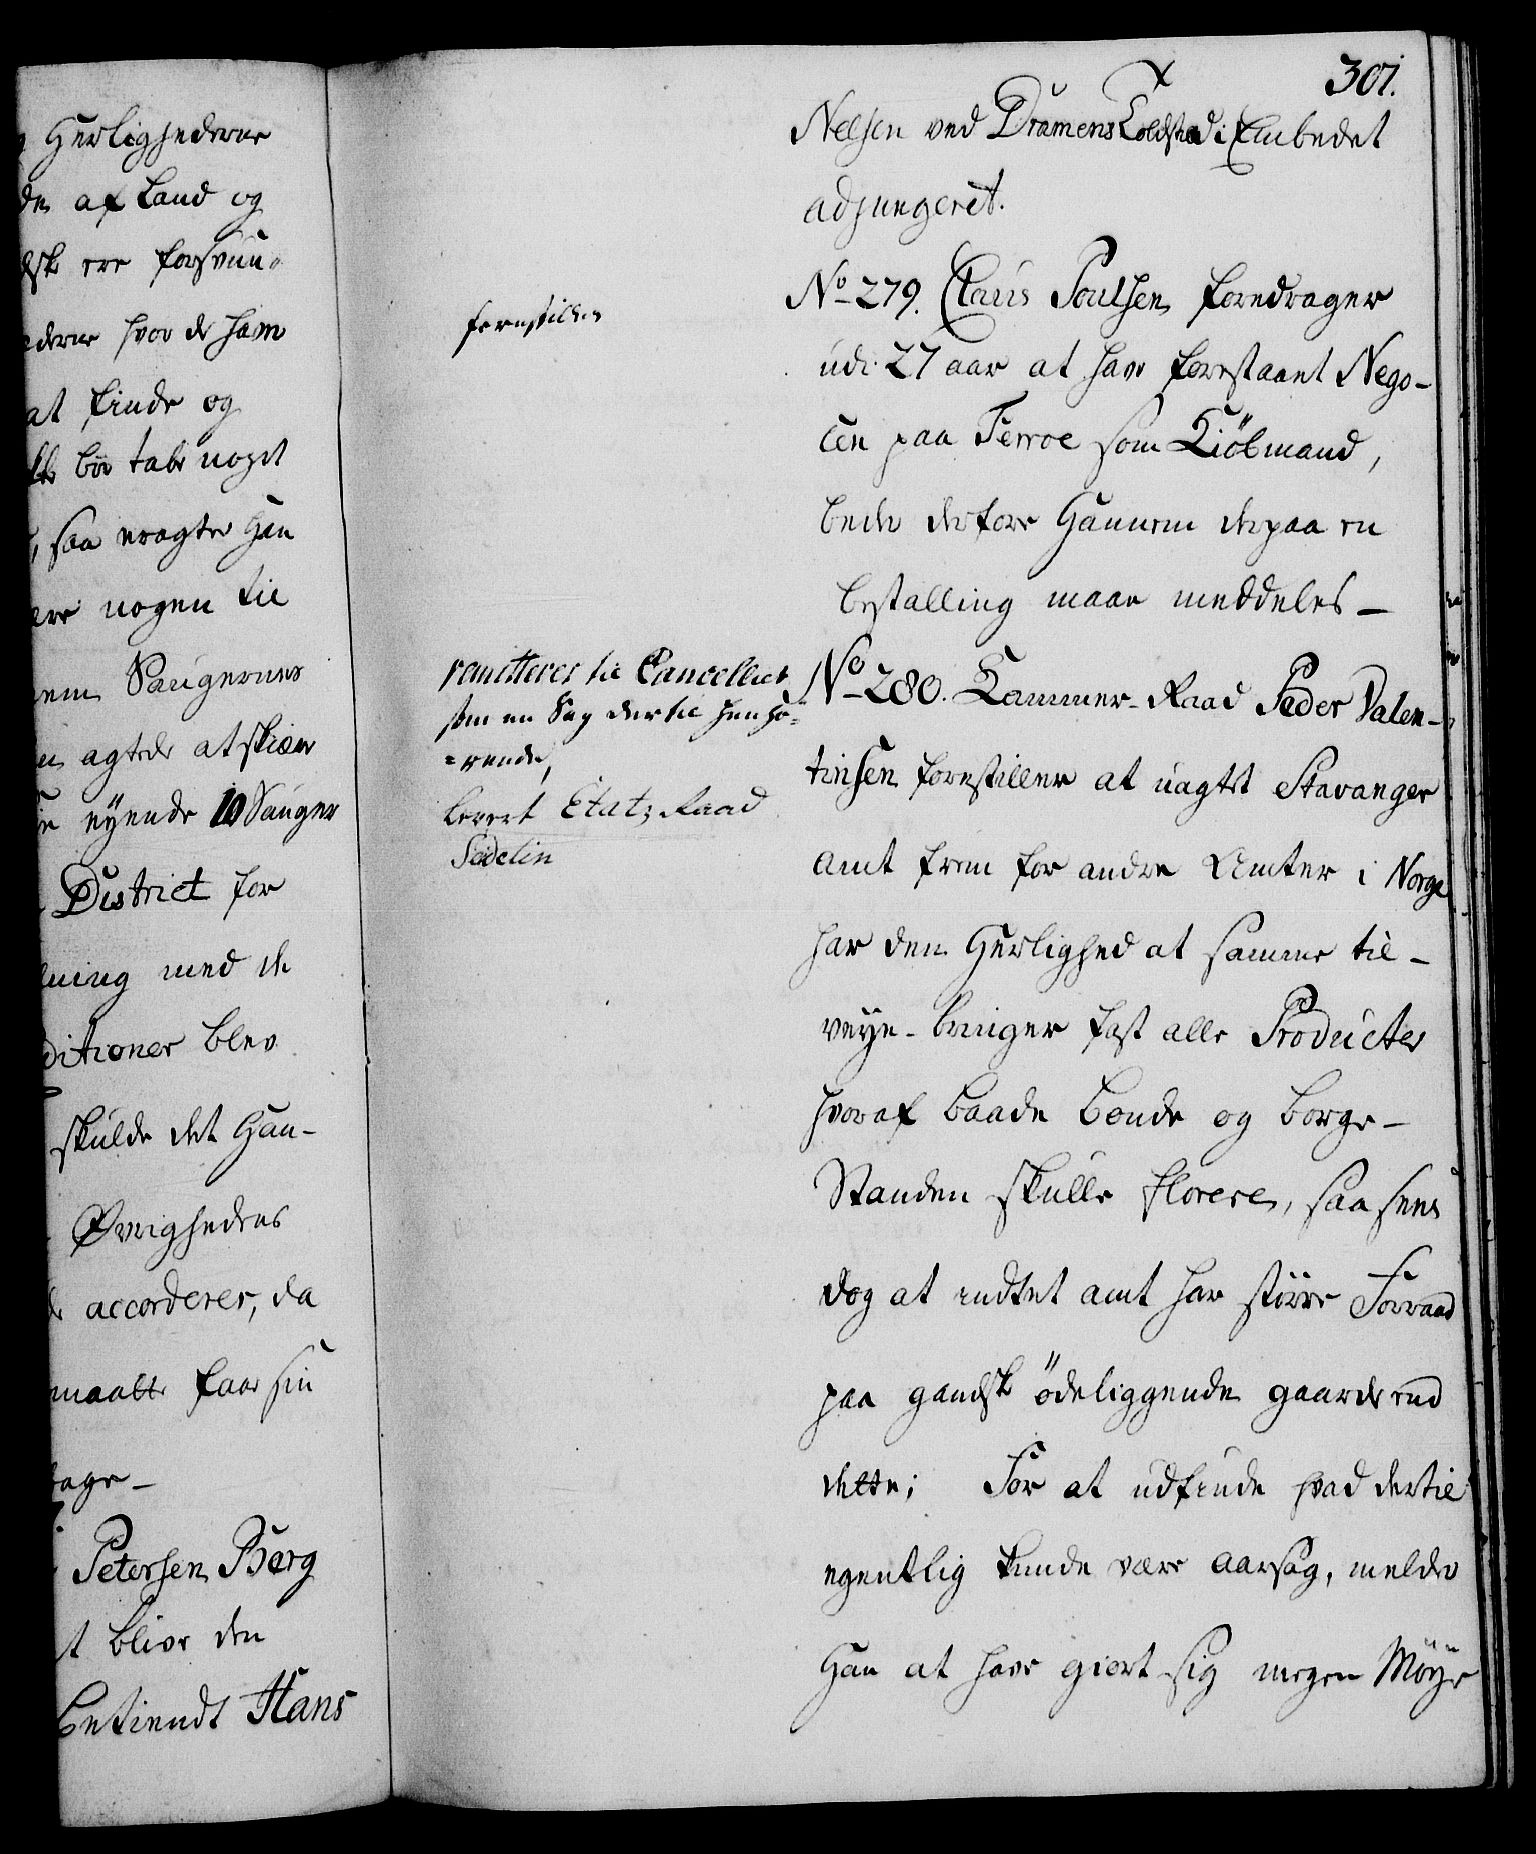 Herlighederne
af Land og
ere forsvun-
hvor de ham
at finde og
bør tabe noget
saa eragter Han
nogen til
Saugernes
agtede at skiære
eyende 10 Sauger
District for
med de
ditioner blev
skulde det Han-
Øvrighedens
accorderes, da
maatte faae sin
tage -
Petersen Berg
blive den
betiendt Hans
301.
Nelsen ved Dramens Toldsted i Embedet
adjungeret.
forestilles
No 279. Claus Poulsen foredrager
udi 27 aar at have forestaaet Nego-
cen paa Ferroe som Kiöbmand,
beder derfore Hannem derpaa en
bestalling maae meddeles -
remitteres til Cancelliet
som en Sag dertil henhö-
-rende,
levert Etatz Raad
Sedelin
No 280. Kammer-Raad Peder Valen-
tinsen forestiller at uagtet Stavanger
amt frem for andre Amter i Norge
har den Herlighed at samme til-
veye-bringer fast alle Producter
hvoraf baade bonde og borge-
Standen skulle florere, saa sees
dog at indtet amt har større Forraad
paa gandske ødeliggende gaarde end
dette; For at udfinde hvad dertil
egentlig kunde være aarsag, melder
Han at have giort sig megen Möye